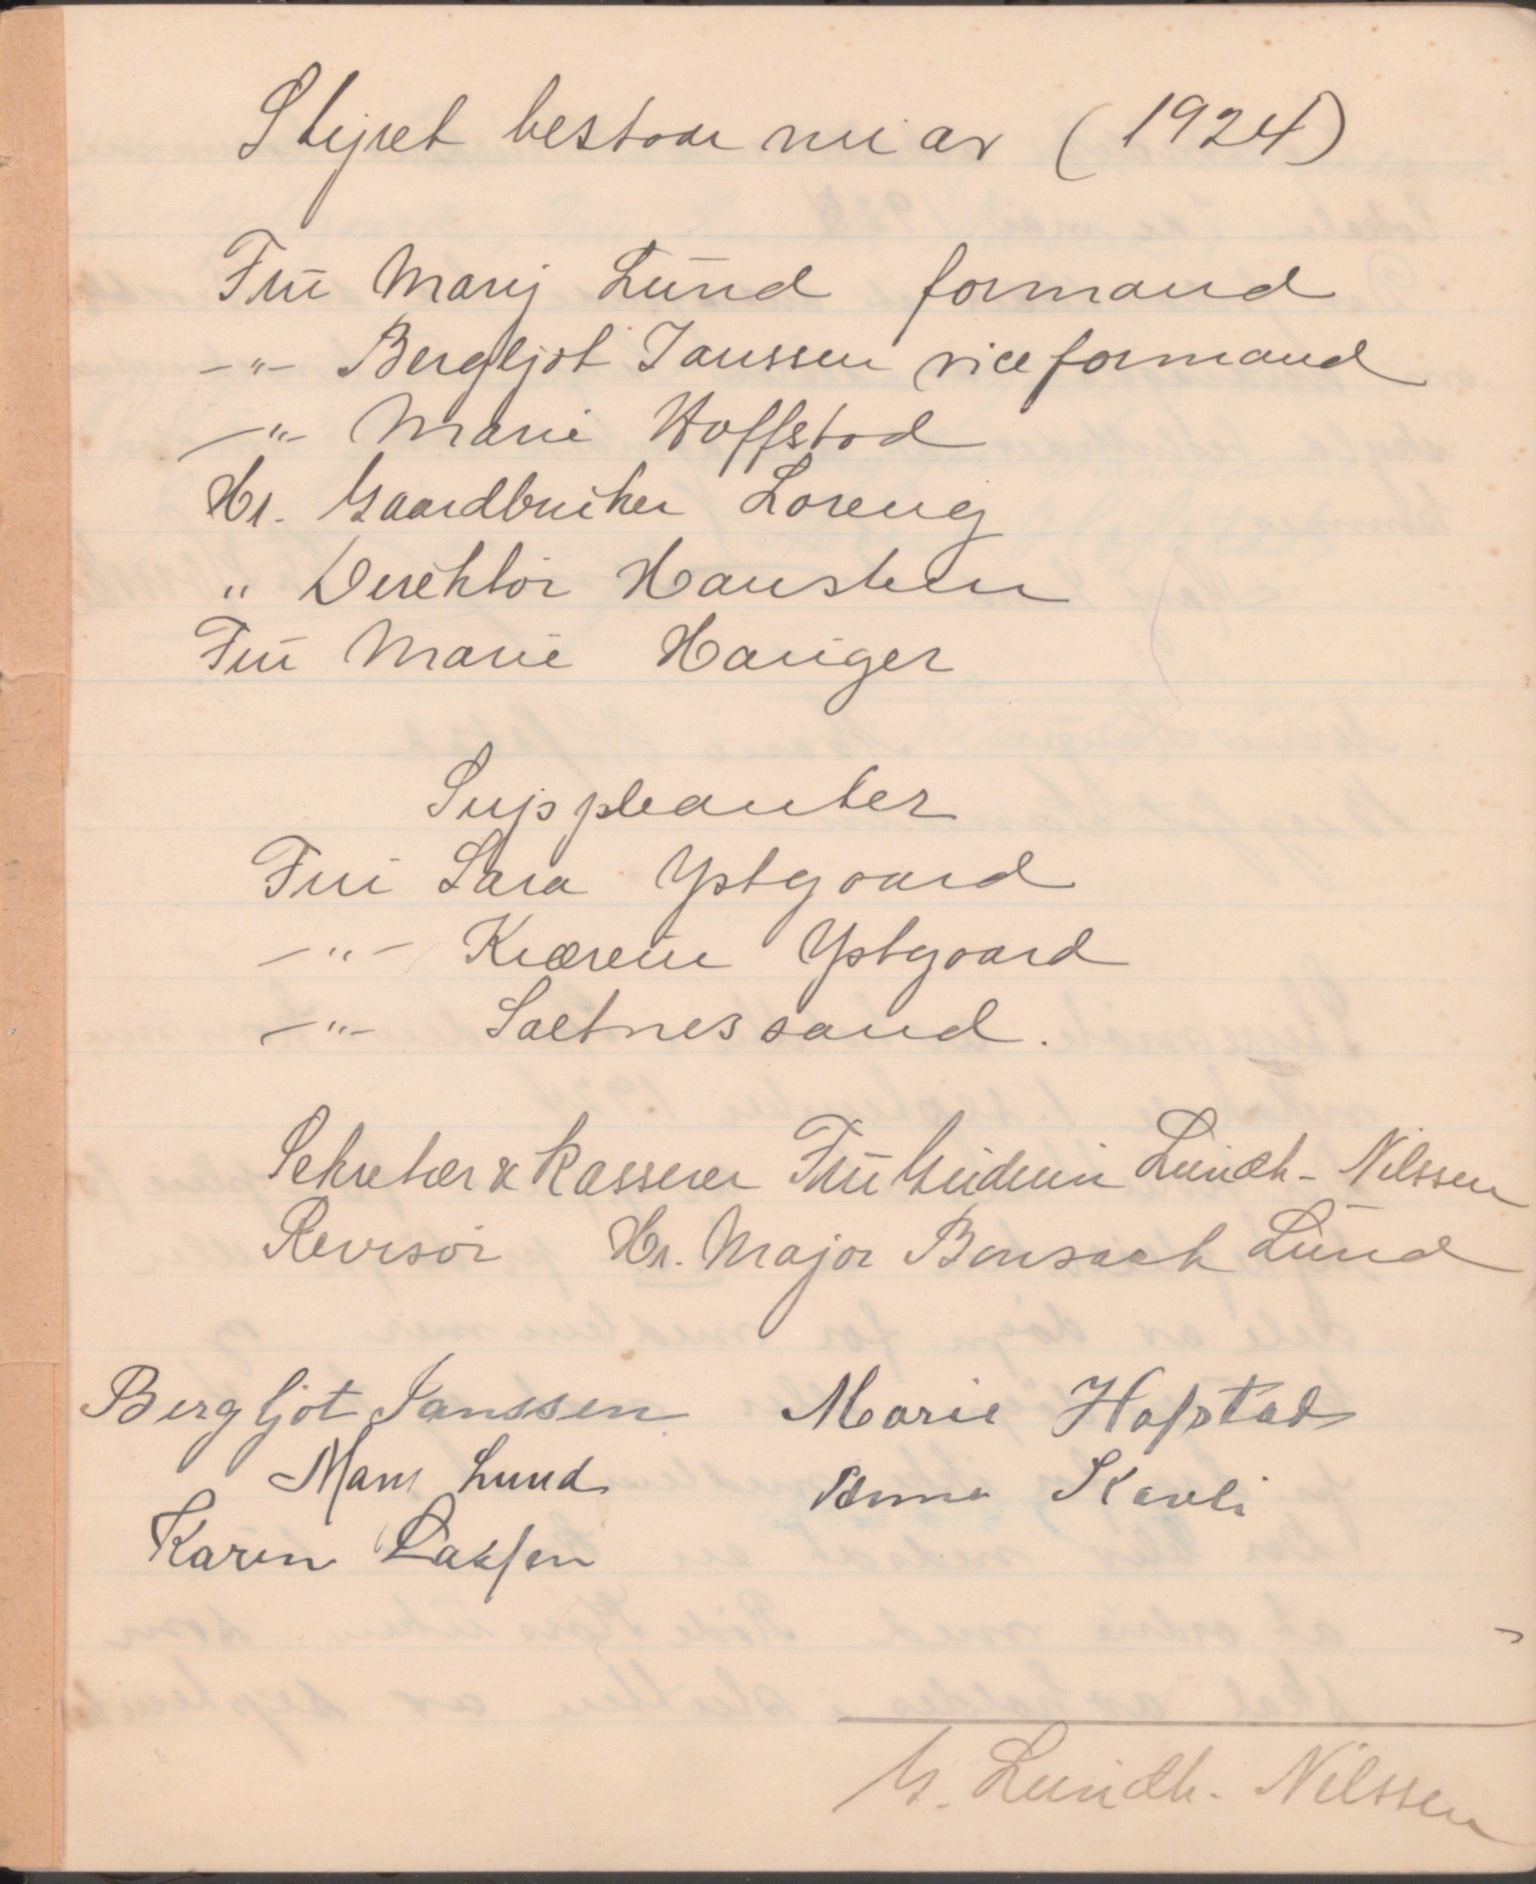 Styret bestaar nu av (1924)
Fru Mary Lund formand
-"- Bergljot Janssen viceformand
-"- Marie Hoffstad
Hr. Gaardbruker Loreng
" Direktør Hausteen
Fru Marie Hauger
Suppleanter
Fru Sara Ystgaard
-"- Kværein Ystgaard
-"- Saltnessand.
Sekretær & Kasserer Fru Gudrun Lundh-Nilssen
Revisor Hr. Major Bonsach Lund
Bergljot Janssen Marie Hofstad
Mary Lund Anna Skavli
Karen Larssen
G. Lundh-Nilssen